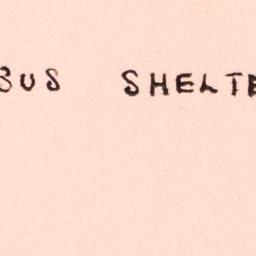 BUS SHELTE